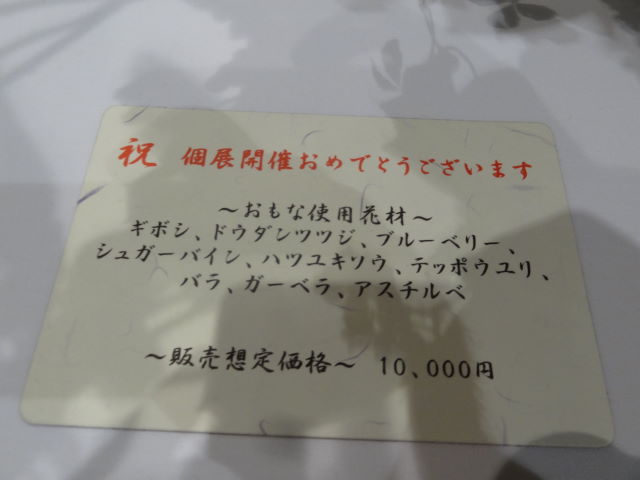 祝 個展開催おめでとうございます
～おもな使用花材～
ギボシ、ドウダンツツジ、ブルーベリー、
シュガーバイン、ハツユキソウ、テッポウユリ、
バラ、ガーベラ、アスチルベ
～販売想定価格～ 10,000円